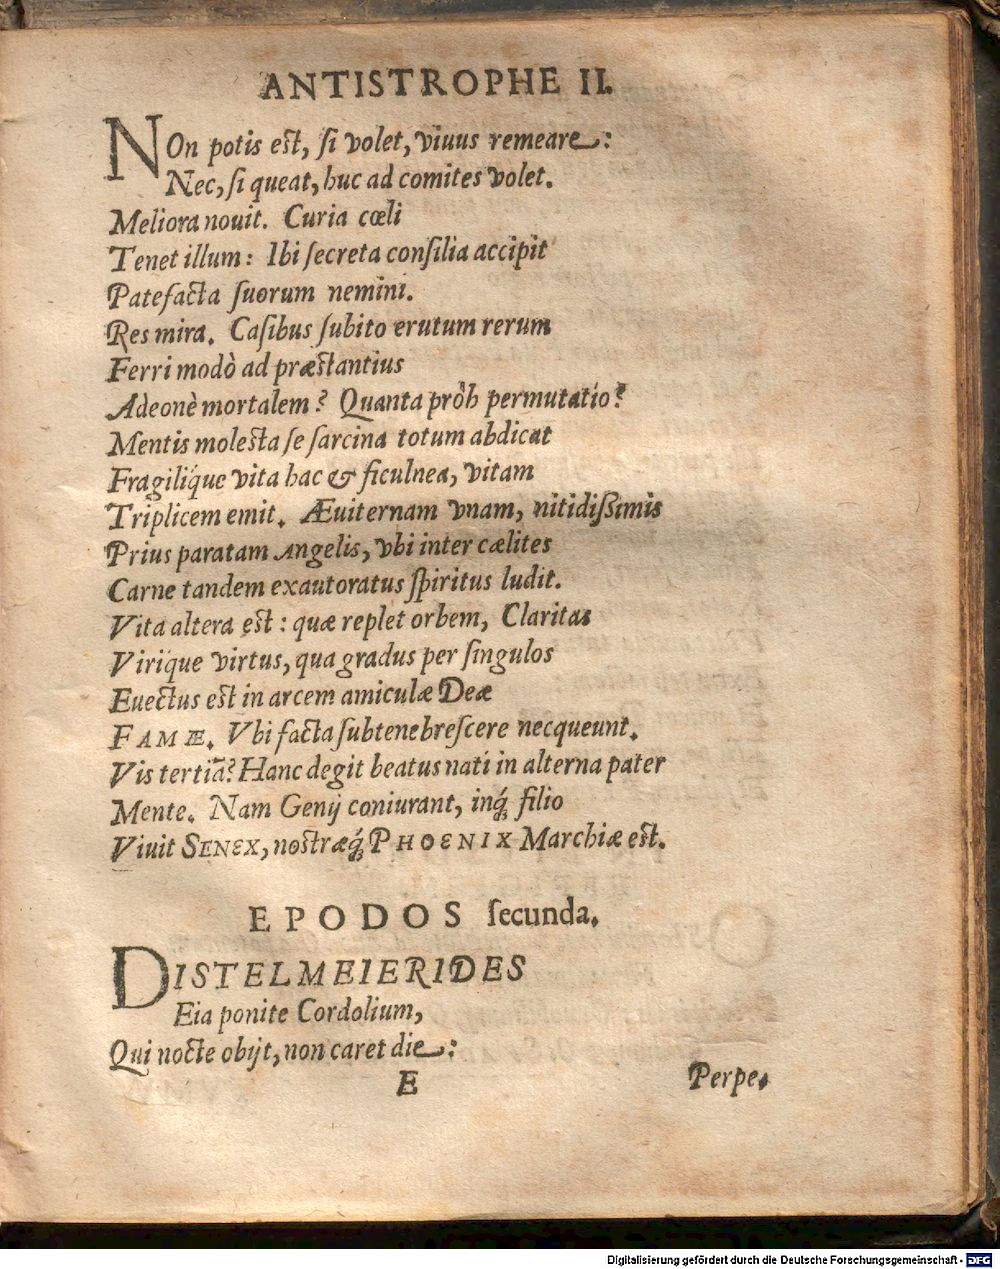 ANTISTROPHE II.
NOn potis eſt, ſi volet, viuus remeare:
Nec, ſi queat, huc ad comites volet.
Meliora nouit. Curia cœli
Tenet illum: Ibi ſecreta conſilia accipit
Patefacta ſuorum nemini.
Res mira. Caſibus ſubito erutum rerum
Ferri modò ad præſtantius
Adeonè mortalem? Quanta pròh permutatio?
Mentis moleſta ſe ſarcina totum abdicat
Fragiliq́ue vita hac & ficulnea, vitam
Triplicem emit. Æuiternam vnam, nitidiſsimis
Prius paratam Angelis, vbi inter cælites
Carne tandem exautoratus ſpiritus ludit.
Vita altera eſt: quæ replet orbem, Claritas
Viriq́ue virtus, qua gradus per ſingulos
Euectus eſt in arcem amiculæ Deæ
FAMÆ. Vbi facta ſubtenebreſcere necqueunt.
Vis tertiã? Hanc degit beatus nati in alterna pater
Mente. Nam Genij coniurant, inq́; filio
Viuit SENEX, noſtræq́; PHOENIX Marchiæ eſt.
EPODOS ſecunda.
DISTELMEIERIDES
Eia ponite Cordolium,
Qui nocte obijt, non caret die:
E
Perpe.
Digitalisierung gefördert durch die Deutsche Forschungsgemeinschaft - DFG